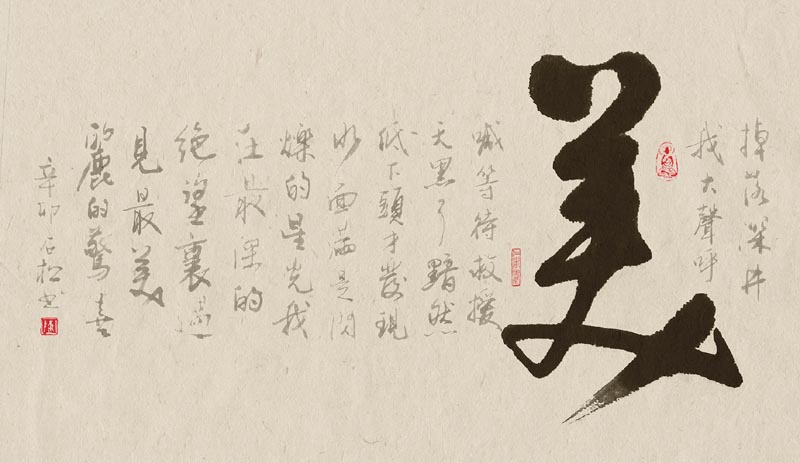 掉落深井
我大聲呼
美
喊等待救援
天黑了黯然
低下頭才發現
水面滿是閃
爍的星光我
在最深的
絕望裏遇
見最美
麗的驚喜
辛卯石松書